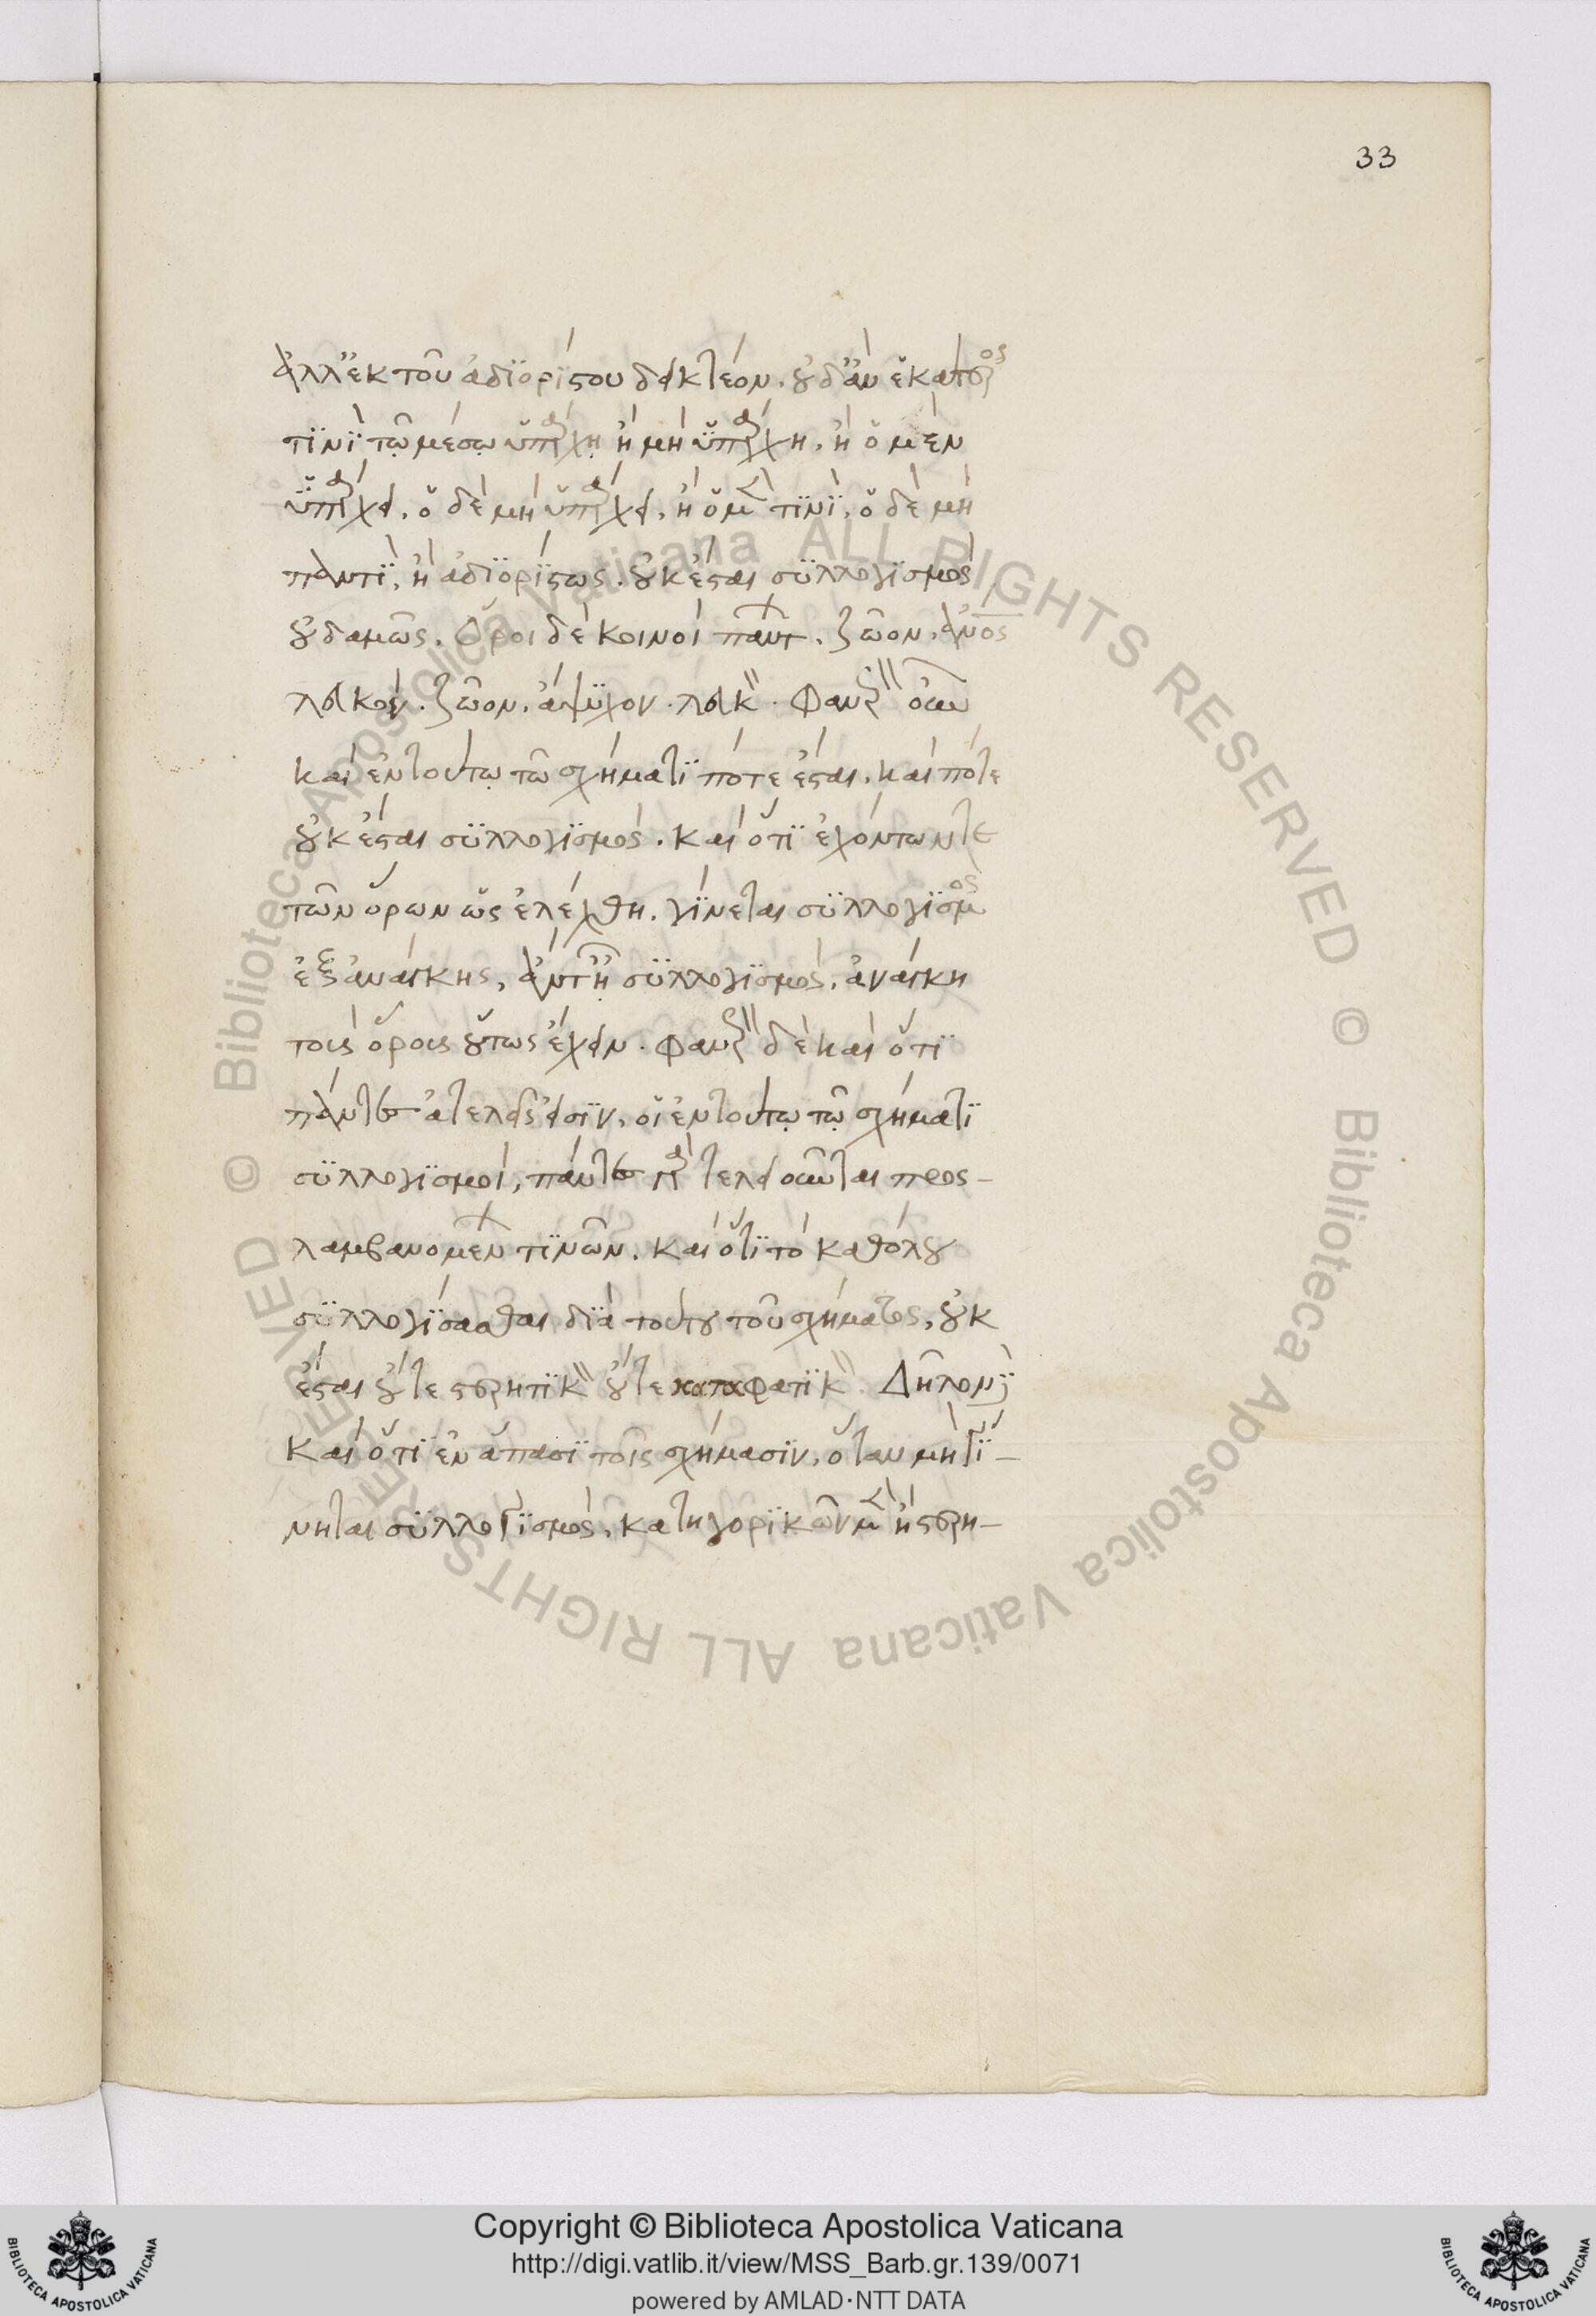 33
ἀλλ' ἐκ τοῦ ἀδιορίστου δεικτέον. οὐδ' ἂν ἑκάτερος
τινὶ τῷ μέσῳ ὑπάρχῃ ἢ μὴ ὑπάρχῃ. ἢ ὁ μὲν
ὑπάρχει, ὁ δὲ μὴ ὑπάρχει, ἢ ὁ μὲν τινὶ, ὁ δὲ μὴ
παντὶ, ἢ ἀδιορίστως. οὐκ ἔσται συλλογισμὸς
οὐδαμῶς. Ὅροι δὲ κοινοὶ πάντων. ζῶον, ἄνος
λευκόν. ζῶον, ἄψυχον. λευκόν. Φανερὸν οὖν
καὶ ἐν τούτῳ τῷ σχήματι πότε ἔσται, καὶ πότε
οὐκ ἔσται συλλογισμός. Καὶ ὅτι ἐχόντων τε
τῶν ὅρων ὡς ἐλέχθη, γίνεται συλλογισμὸς
ἐξ ἀνάγκης, ἄν τ' ᾖ συλλογισμὸς, ἀνάγκη
τοὺς ὅρους οὕτως ἔχειν. Φανερὸν δὲ καὶ ὅτι
πάντες ἀτελεῖς εἰσὶν, οἱ ἐν τούτῳ τῷ σχήματι
συλλογισμοὶ, πάντες γὰρ τελειοῦνται προσ-
λαμβανομένων τινῶν. Καὶ ὅτι τὸ καθόλου
συλλογίσασθαι διὰ τούτου τοῦ σχήματος, οὐκ
ἔσται οὔτε στερητικὸν οὔτε καταφατικόν. Δῆλον δὲ
καὶ ὅτι ἐν ἅπασι τοῖς σχήμασιν, ὅταν μὴ γί-
νηται συλλογισμὸς, κατηγορικῶν μὲν ἢ στερη-
Copyright © Biblioteca Apostolica Vaticana
http://digi.vatlib.it/view/MSS_Barb.gr.139/0071
powered by AMLAD·NTT DATA
© Biblioteca Apostolica Vaticana ALL RIGHTS RESERVED © Biblioteca Apostolica Vaticana ALL RIGHTS RESERVED
BIBLIOTECA APOSTOLICA VATICANA
BIBLIOTECA APOSTOLICA VATICANA